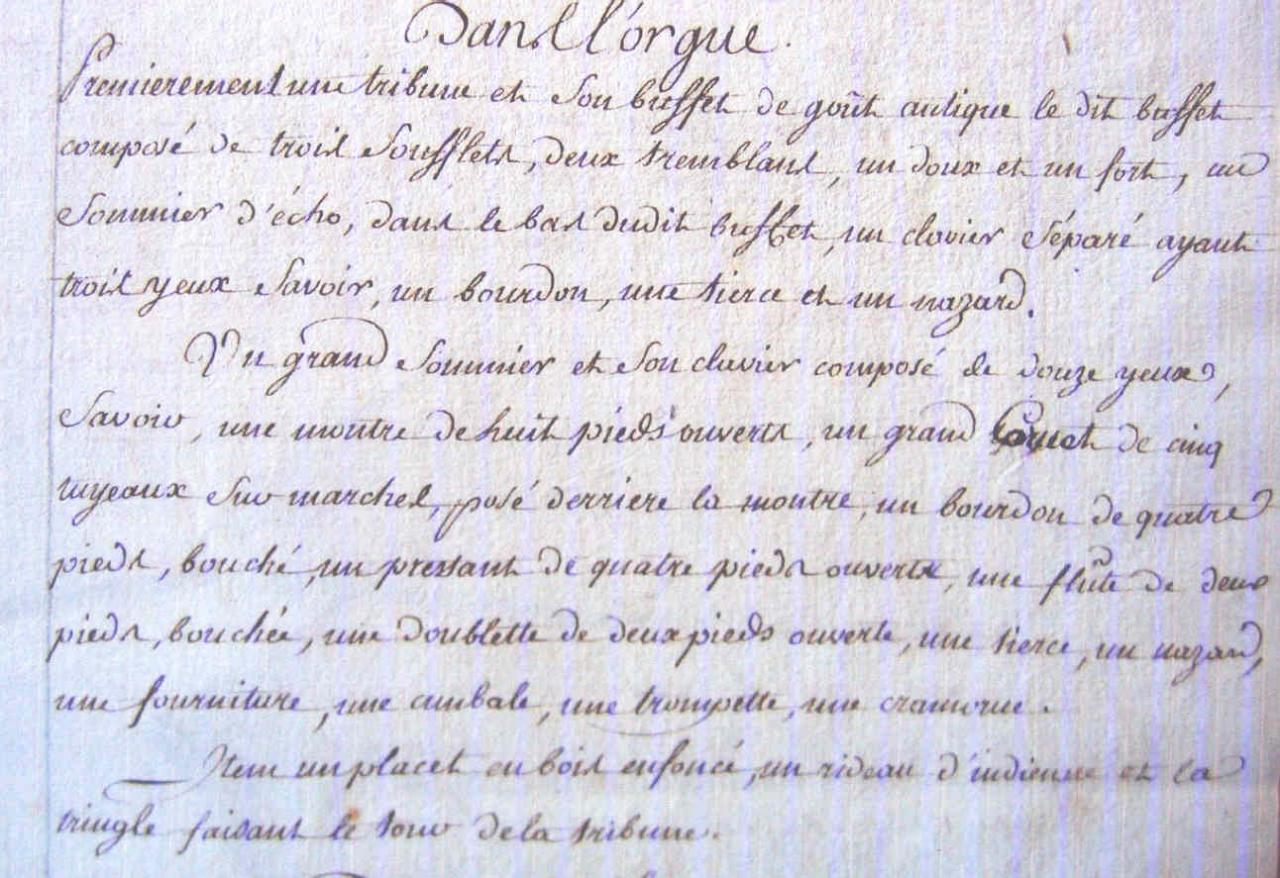 Dans l'orgue.
Premierement une tribune et son buffet de goût antique le dit buffet
composé de trois soufflets, deux tremblans, un doux et un fort, un
sommier d'écho, dans le bas dudit buffet, un clavier séparé ayant
trois yeux savoir, un bourdon, une tierce et un nazard.
Un grand sommier et son clavier composé de douze yeux,
savoir, une montre de huit pieds ouverts, un grand Cornet de cinq
tuyeaux sur marches, posé derriere la montre, un bourdon de quatre
pieds, bouché, un pressant de quatre pieds ouverts, une flûte de deux
pieds, bouchée, une doublette de deux pieds ouverte, une tierce, un nazard,
une fourniture, une cimbale, une trompette, une cramorne.
Item un placet en bois enfoncé, un rideau d'indienne et la
tringle faisant le tour de la tribune.